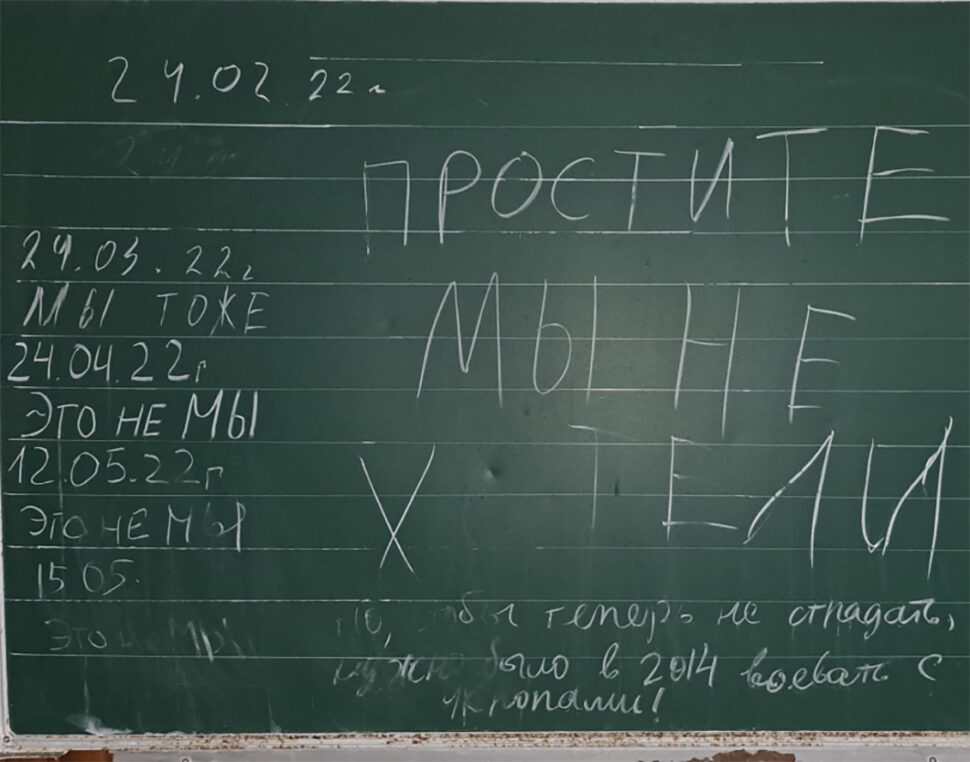 24.02.22 г
ПРОСТИТЕ
МЫ НЕ
ХТЕЛИ
24.03.22г
МЫ ТОЖЕ
24.04.22г
ЭТО НЕ МЫ
12.05.22г
ЭТО НЕ МЫ
15.05.
Это не Мы
но, чтобы теперь не страдать,
нужно было в 2014 воевать с
укропами!